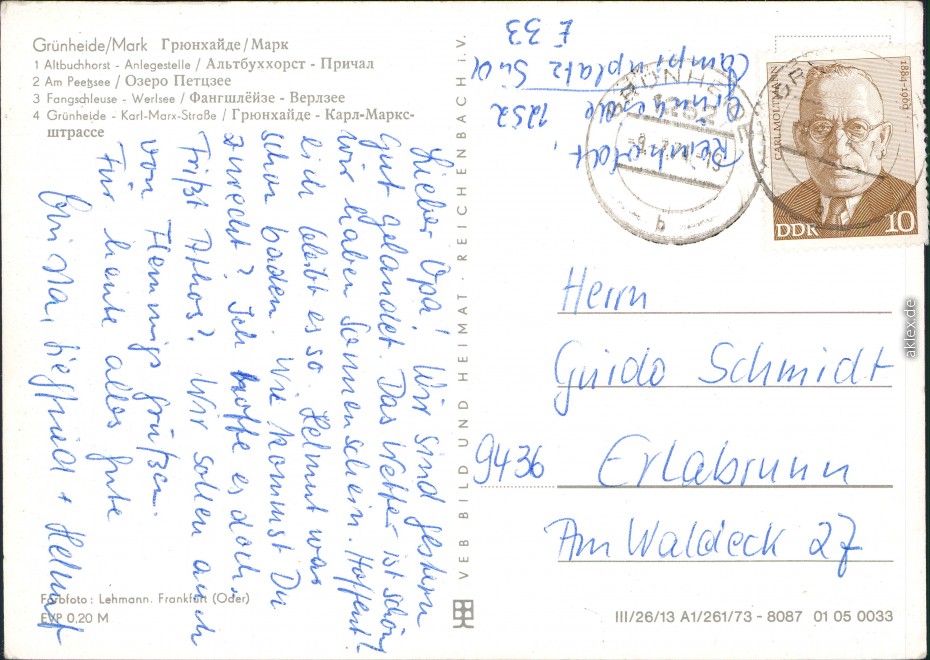 Grünheide/Mark Грюнхайде/Марк
1 Altbuchhorst - Anlegestelle / Альтбуххорст - Причал
2 Am Peetzsee / Озеро Петцзее
3 Fangschleuse - Werlsee / Фангшлёйзе - Верлзее
4 Grünheide - Karl-Marx-Straße / Грюнхайде - Карл-Маркс-
штрассе
Lieber Opa! Wir sind gestern
gut gelandet. Das Wetter ist schön
wir haben Sonnenschein. Hoffent-
lich bleibt es so. Helmut war
schon baden. Wie kommst Du
zurecht? Ich hoffe es doch.
Frißt Athos? Wir sollen auch
von Flemmigs grüßen.
Für heute alles gute
Siegfried + Helmut
Farbfoto: Lehmann, Frankfurt (Oder)
EVP 0,20 M
VEB BILD UND HEIMAT · REICHENBACH i. V.
Reinholdt,
1252
Campingplatz Süd
E 33
GRÜNHEIDE
1252
b
CARL MOLTMANN
1884-1960
DDR
10
Herrn
Guido Schmidt
9436 Erlabrunn
Am Waldeck 27
III/26/13 A1/261/73 - 8087 01 05 0033
aklex.de